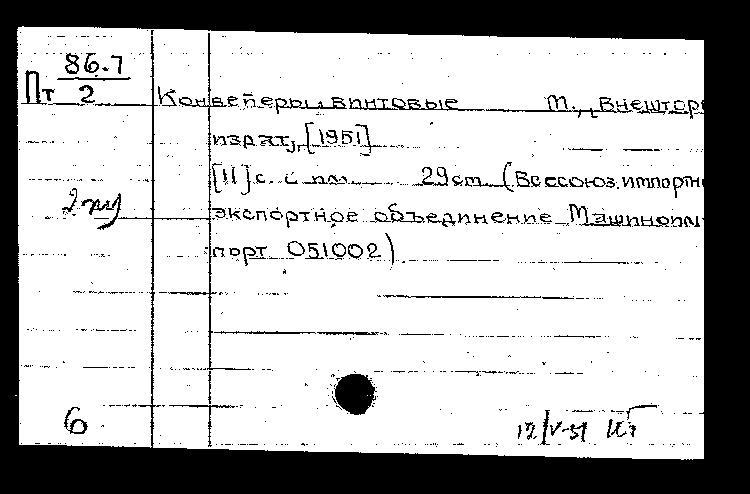 Пт 86.7
2
Конвейеры винтовые М., Внештор
издат, [1951]
[11] с. с ил. 29 см. (Всесоюз. импортн
2 экз
экспортное объединение Машиноим
порт 051002)
6
12/V-51